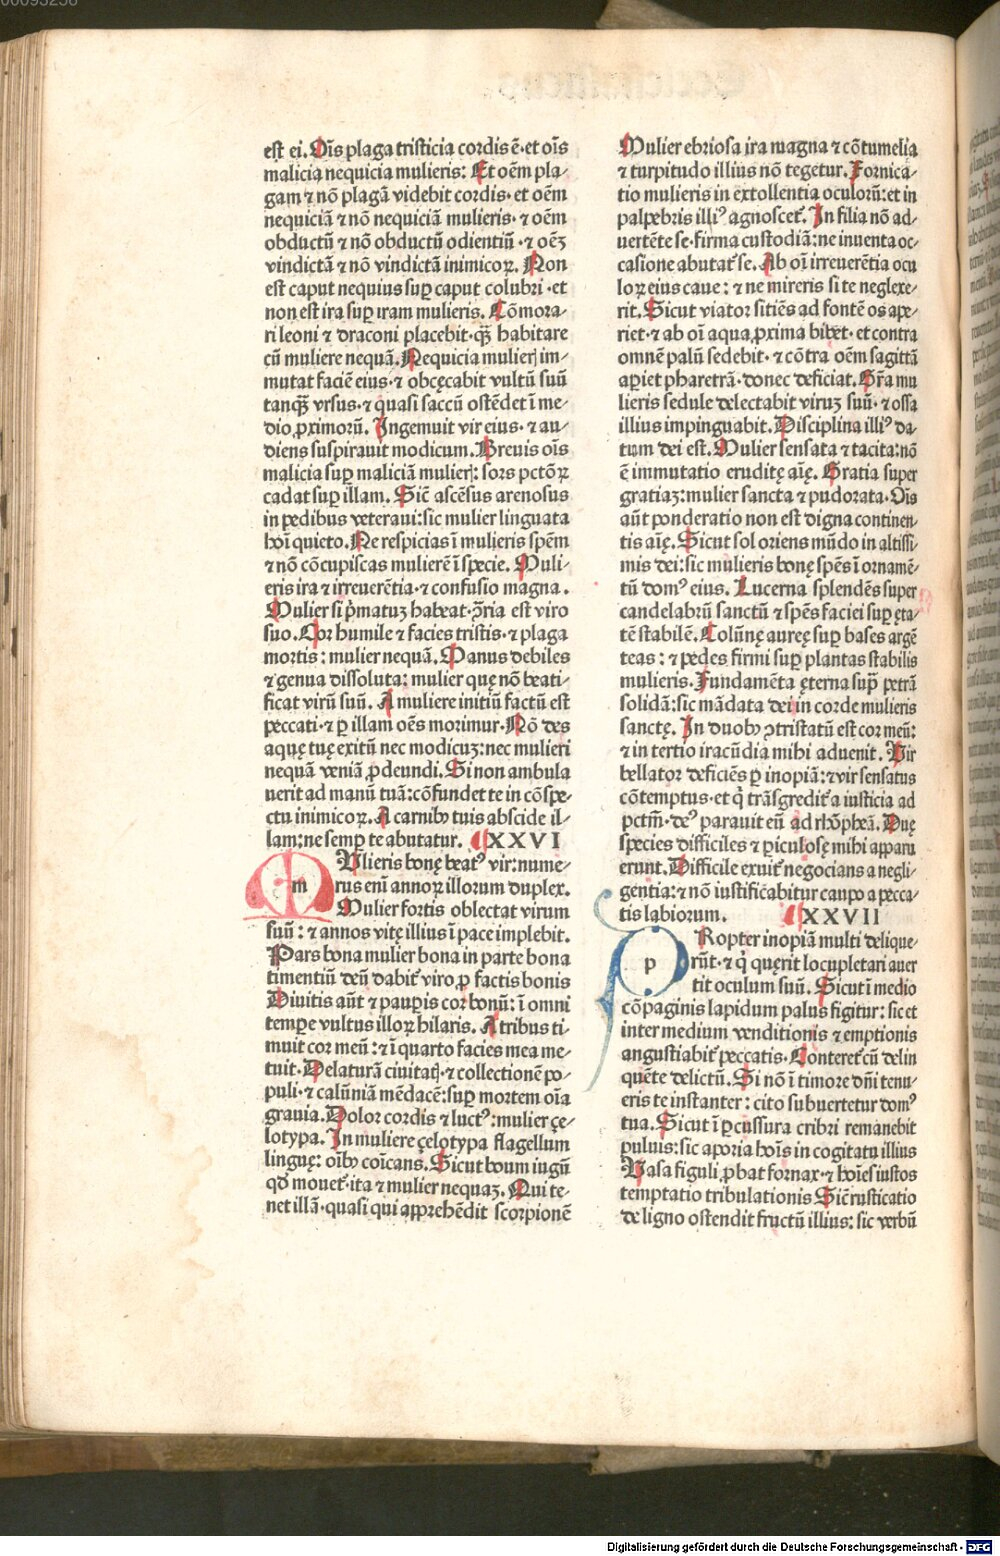 est ei. Oīs plaga tristicia cordis ē· et oīs
malicia nequicia mulieris: Et oēm pla⸗
gam ⁊ nō plagā videbit cordis· et oēm
nequiciā ⁊ nō nequiciā mulieris· ⁊ oēm
obductū ⁊ nō obductū odientiū ·⁊ oēꝫ
vindictā ⁊ nō vindictā inimicoꝝ. Non
est caput nequius suꝑ caput colubri ·et
non est ira suꝑ iram mulieris. Cōmora⸗
ri leoni ⁊ draconi placebit· qȝ̄ habitare
cū muliere nequā. Nequicia mulierꝭ im⸗
mutat faciē eius· ⁊ obcęcabit vultū suū
tanqȝ̄ vrsus· ⁊ quasi saccū ostēdet ī me⸗
dio ꝓximorū. Ingemuit vir eius· ⁊ au⸗
diens suspirauit modicum. Breuis oīs
malicia suꝑ maliciā mulierꝭ: sors pctōꝝ
cadat suꝑ illam. Sic̄ ascēsus arenosus
in pedibus veterani: sic mulier linguata
hoī quieto. Ne respicias ī mulieris spēm
⁊ nō cōcupiscas mulierē ī specie. Muli⸗
eris ira ⁊ irreuerētia· ⁊ confusio magna.
Mulier si p̄matuꝫ habeat· ꝯ̄ria est viro
suo. Cor humile ⁊ facies tristis· ⁊ plaga
mortis: mulier nequā. Manus debiles
⁊ genua dissoluta: mulier quę nō beati⸗
ficat virū suū. A muliere initiū factū est
peccati· ⁊ ꝑ illam oēs morimur. Nō des
aquę tuę exitū nec modicuꝫ: nec mulieri
nequā veniā ꝓdeundi. Si non ambula
uerit ad manū tuā: cōfundet te in cōspe⸗
ctu inimicoꝝ. A carnibꝰ tuis abscide il⸗
lam: ne semꝑ te abutatur. XXVI
m Vlieris bonę beatꝰ vir: nume⸗
rus enī annoꝝ illorum duplex.
Mulier fortis oblectat virum
suū: ⁊ annos vitę illius ī pace implebit.
Pars bona mulier bona in parte bona
timentiū deū dabit᷑ viro ꝓ factis bonis
Diuitis aūt ⁊ pauꝑis cor bonū: ī omni
tempe vultus illoꝝ hilaris. A tribus ti⸗
muit cor meū: ⁊ ī quarto facies mea me⸗
tuit· Delaturā ciuitatꝭ· ⁊ collectionē po⸗
puli· ⁊ calūniā mēdacē: suꝑ mortem oīa
grauia. Dolor cordis ⁊ luctꝰ: mulier çe⸗
lotypa. In muliere çelotypa flagellum
linguę: oībꝰ coīcans. Sicut boum iugū
qd̄ mouet᷑· ita ⁊ mulier nequaꝫ. Qui te⸗
net illā· quasi qui apprehēdit scorpionē
Mulier ebriosa ira magna ⁊ cōtumelia
⁊ turpitudo illius nō tegetur. Fornica⸗
tio mulieris in extollentia oculorū: et in
palpebris illiꝰ agnoscet᷑. In filia nō ad⸗
uertēte se· firma custodiā: ne inuenta oc⸗
casione abutat᷑ se. Ab oī irreuerētia ocu
loꝝ eius caue: ⁊ ne mireris si te neglexe⸗
rit. Sicut viator sitiēs ad fontē os ape⸗
riet· ⁊ ab oī aqua ꝓxima bibet· et contra
omnē palū sedebit· ⁊ cōtra oēm sagittā
aꝑiet pharetrā· donec deficiat. Gr̄a mu
lieris sedule delectabit viruꝫ suū· ⁊ ossa
illius impinguabit. Disciplina illiꝰ da⸗
tum dei est. Mulier sensata ⁊ tacita: nō
ē immutatio eruditę aīę. Gratia super
gratiaꝫ: mulier sancta ⁊ pudorata. Oīs
aūt ponderatio non est digna continen⸗
tis aīę. Sicut sol oriens mūdo in altissi⸗
mis dei: sic mulieris bonę spēs ī ornamē⸗
tū domꝰ eius. Lucerna splendēs super
candelabrū sanctū ⁊ spēs faciei suꝑ ęta⸗
tē stabilē. Colūnę aureę suꝑ bases argē
teas: ⁊ pedes firmi suꝑ plantas stabilis
mulieris. Fundamēta ęterna sup̄ petrā
solidā: sic mādata dei in corde mulieris
sanctę. In duobꝰ ꝯtristatū est cor meū:
⁊ in tertio iracūdia mihi aduenit. Vir
bellator deficiēs ꝑ inopiā: ⁊ vir sensatus
cōtemptus· et q̇ trāsgredit᷑ a iusticia ad
pctm̄· deꝰ parauit eū ad rhōpheā. Duę
species difficiles ⁊ ꝑiculosę mihi apparu
erunt. Difficile exuit᷑ negocians a negli⸗
gentia: ⁊ nō iustificabitur caupo a pecca⸗
tis labiorum. XXVII
p Ropter inopiā multi delique⸗
rūt· ⁊ q̇ quęrit locupletari auer
tit oculum suū. Sicut ī medio
cōpaginis lapidum palus figitur: sic et
inter medium venditionis ⁊ emptionis
angustiabit᷑ peccatis. Conteret᷑ cū delin
quēte delictū. Si nō ī timore dn̄i tenu⸗
eris te instanter: cito subuertetur domꝰ
tua. Sicut ī ꝑcussura cribri remanebit
puluis: sic aporia hoīs in cogitatu illius
Vasa figuli ꝓbat fornax· ⁊ hoīes iustos
temptatio tribulationis Sic̄ rusticatio
de ligno ostendit fructū illius: sic verbū
Digitalisierung gefördert durch die Deutsche Forschungsgemeinschaft - DFG